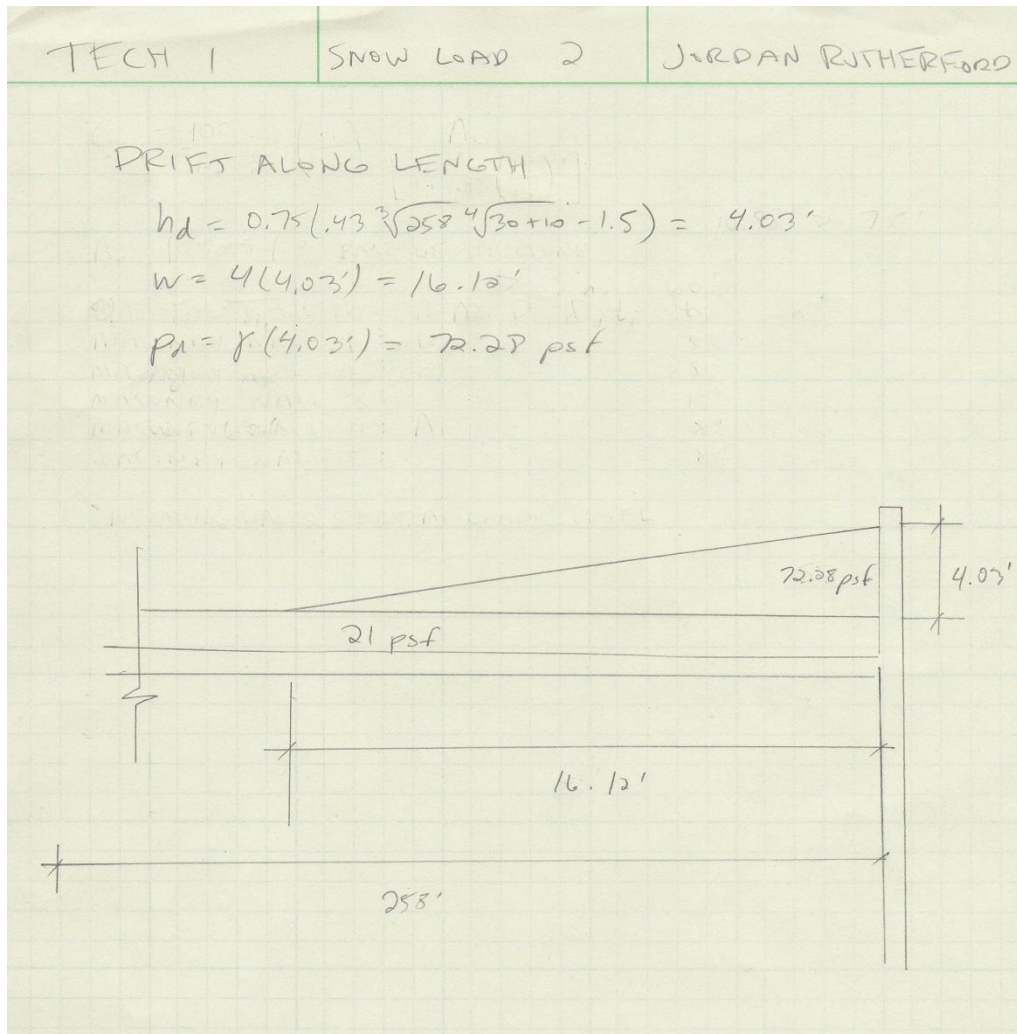 TECH 1 SNOW LOAD 2 JORDAN RUTHERFORD
DRIFT ALONG LENGTH
hd = 0.75(.43 ∛258 ∜30+10 - 1.5) = 4.03'
w = 4(4.03') = 16.12'
pd = γ(4.03') = 72.28 psf
72.28psf
4.03'
21 psf
16.12'
258'